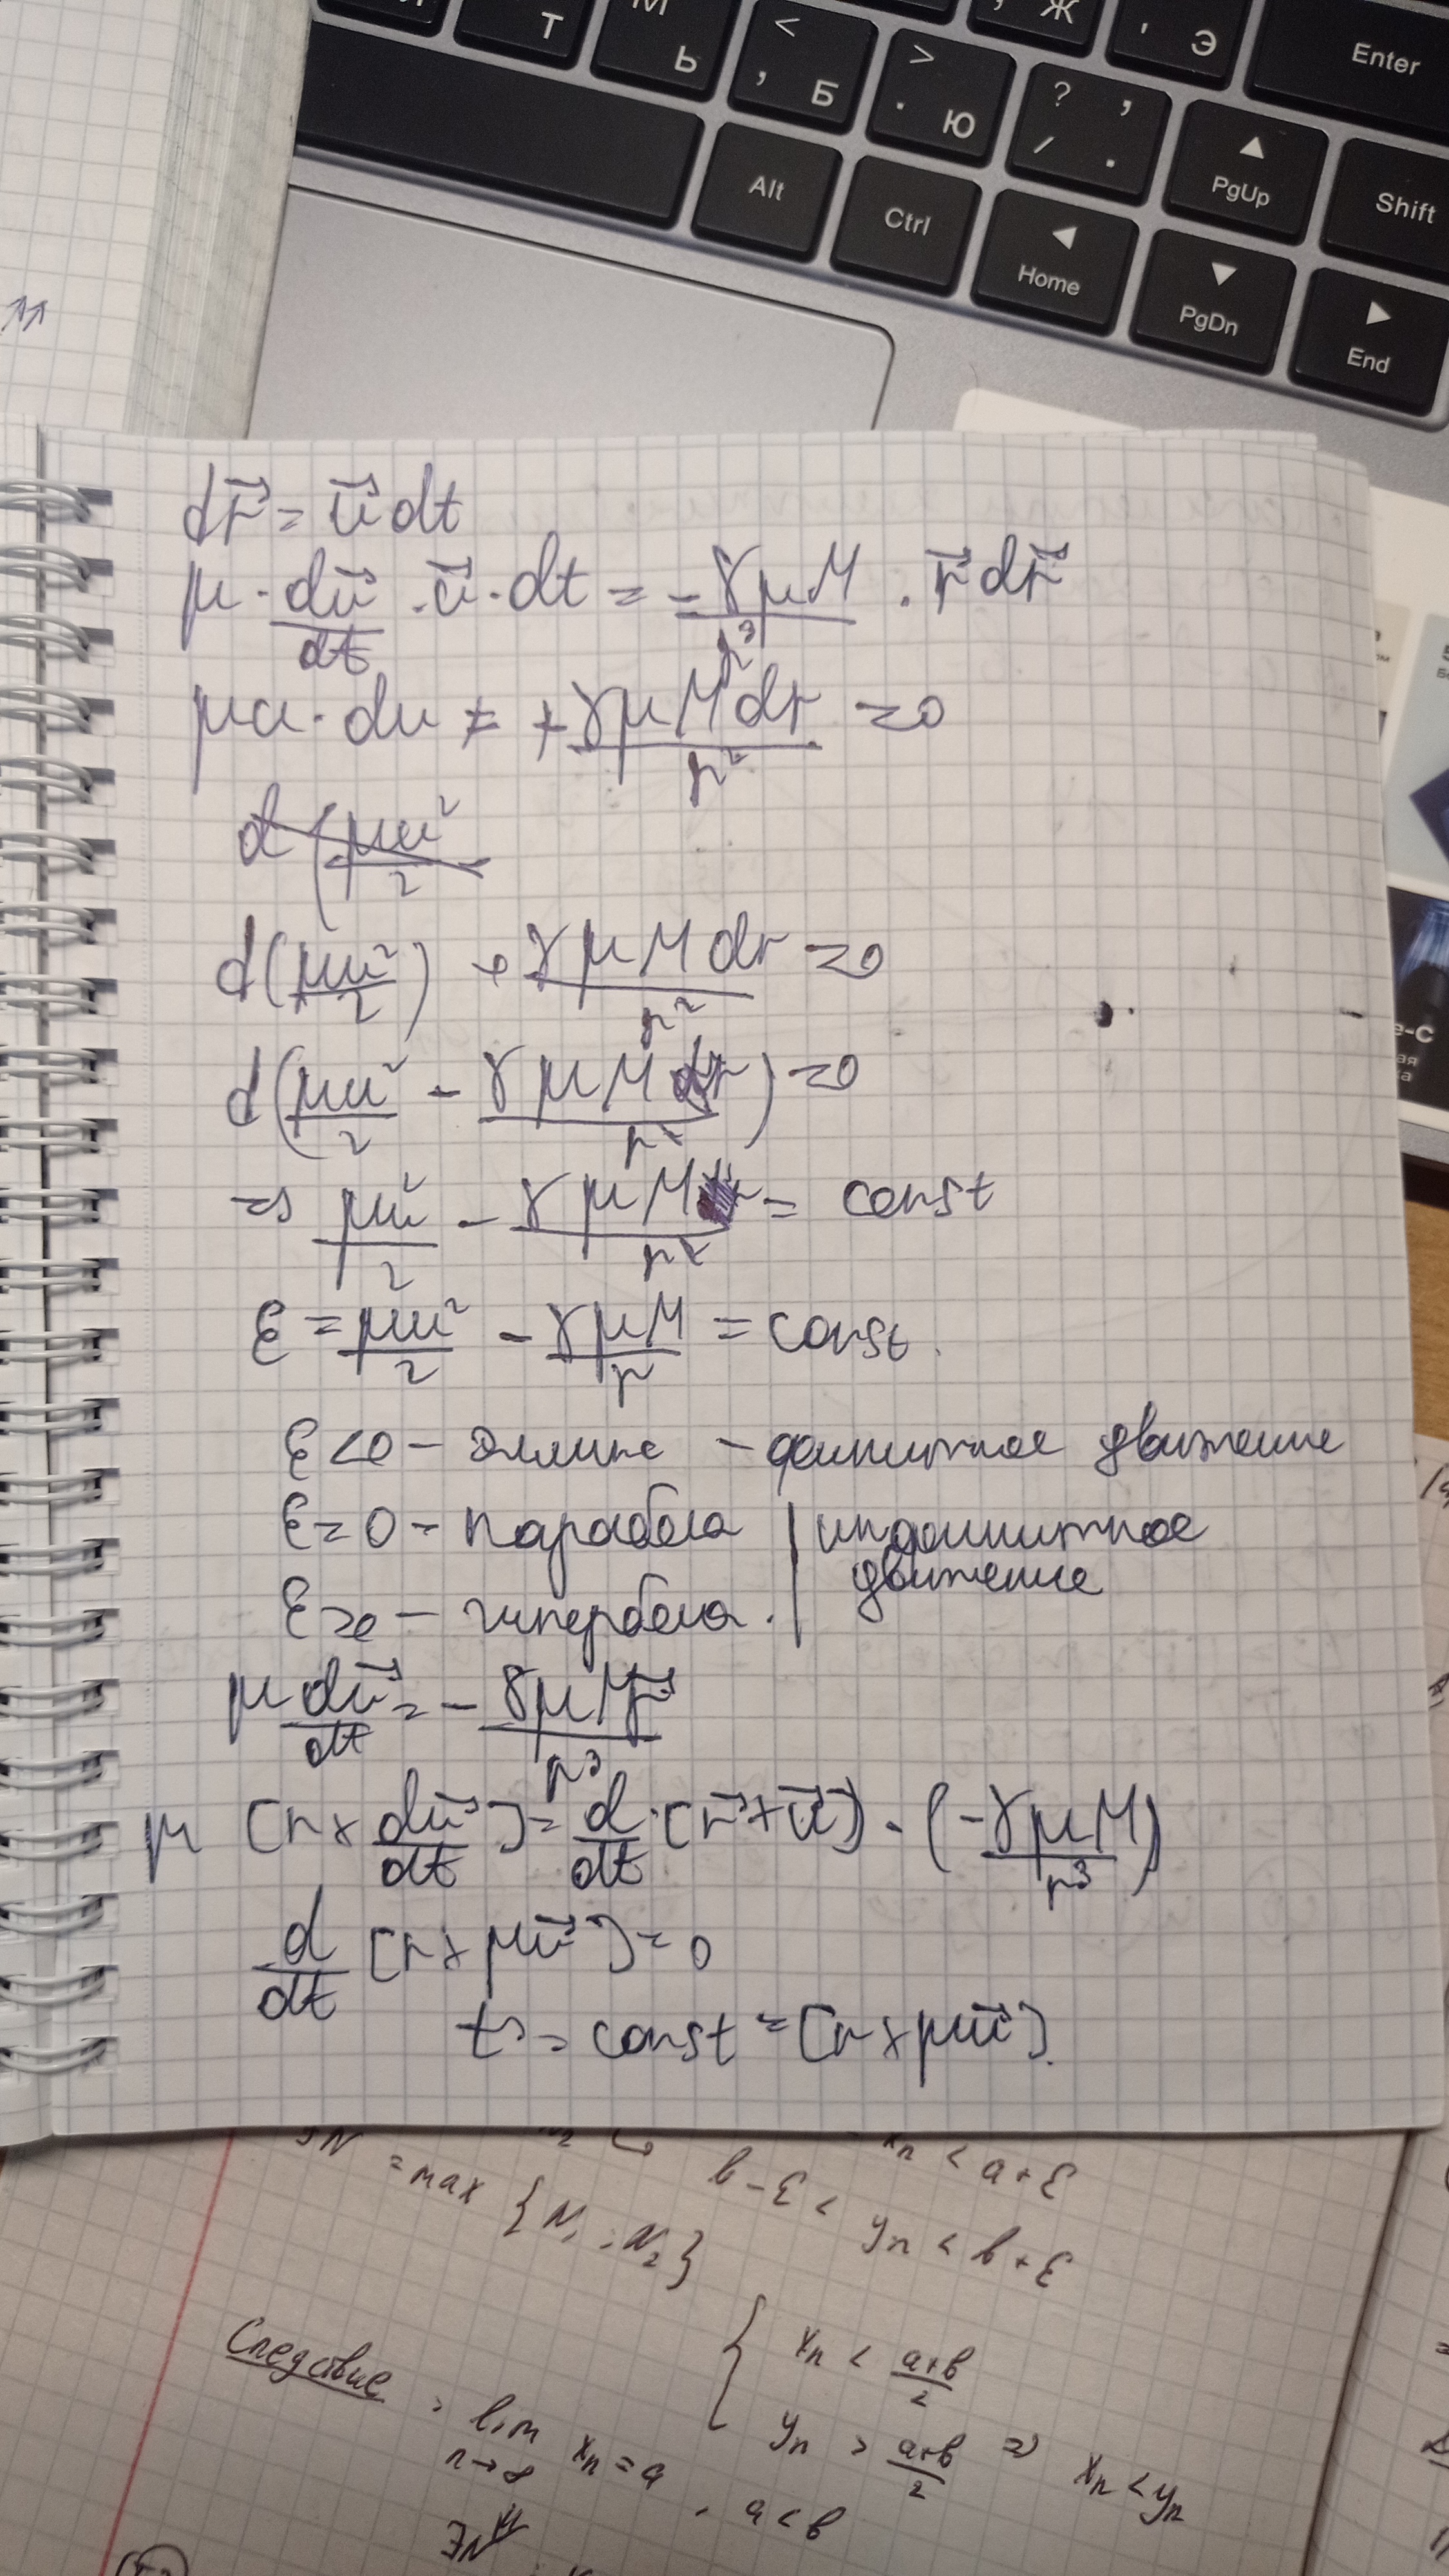 Т
М Ь
< , Б
> . Ю
? , / .
Ж
' Э
Enter
Alt
Ctrl
Home
PgUp
PgDn
Shift
End
d\vec{r} = \vec{u} dt
μ · d\vec{u}/dt · \vec{u} · dt = - γμM/r³ · \vec{r} d\vec{r}
μu · du + γμM dr/r² = 0
d(μu²/2
d(μu²/2) + γμM dr/r² = 0
d(μu²/2 - γμM/r) = 0
=> μu²/2 - γμM/r = const
ε = μu²/2 - γμM/r = const.
ε<0 - эллипс - финитное движение
ε=0 - парабола | инфинитное
движение
ε>0 - гипербола.
μ d\vec{u}/dt = - γμM\vec{r}/r³
μ [r × d\vec{u}/dt] = d/dt · [\vec{r} × \vec{u}] · (-γμM/r³)
d/dt [r × μ\vec{u}] = 0
= const = [r × μ\vec{u}].
N = max {N₁, N₂}
xₙ < a + ε
b - ε < yₙ < b + ε
Следствие: lim n→∞ xₙ = a, a < b
{ xₙ < (a+b)/2
yₙ > (a+b)/2 => xₙ < yₙ
∃N